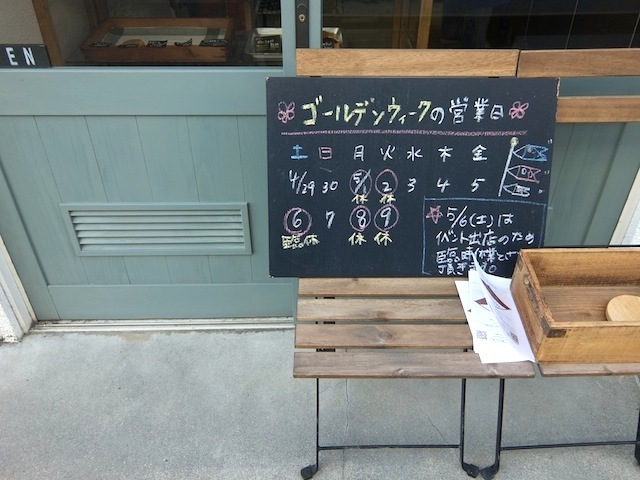 EN
ゴールデンウィークの営業日
土 日 月 火 水 木 金
4/29 30 5/1 2 3 4 5
休 休
6 7 8 9
臨休 休 休
5/6(土)は
イベント出店のため
臨時休業とさせ